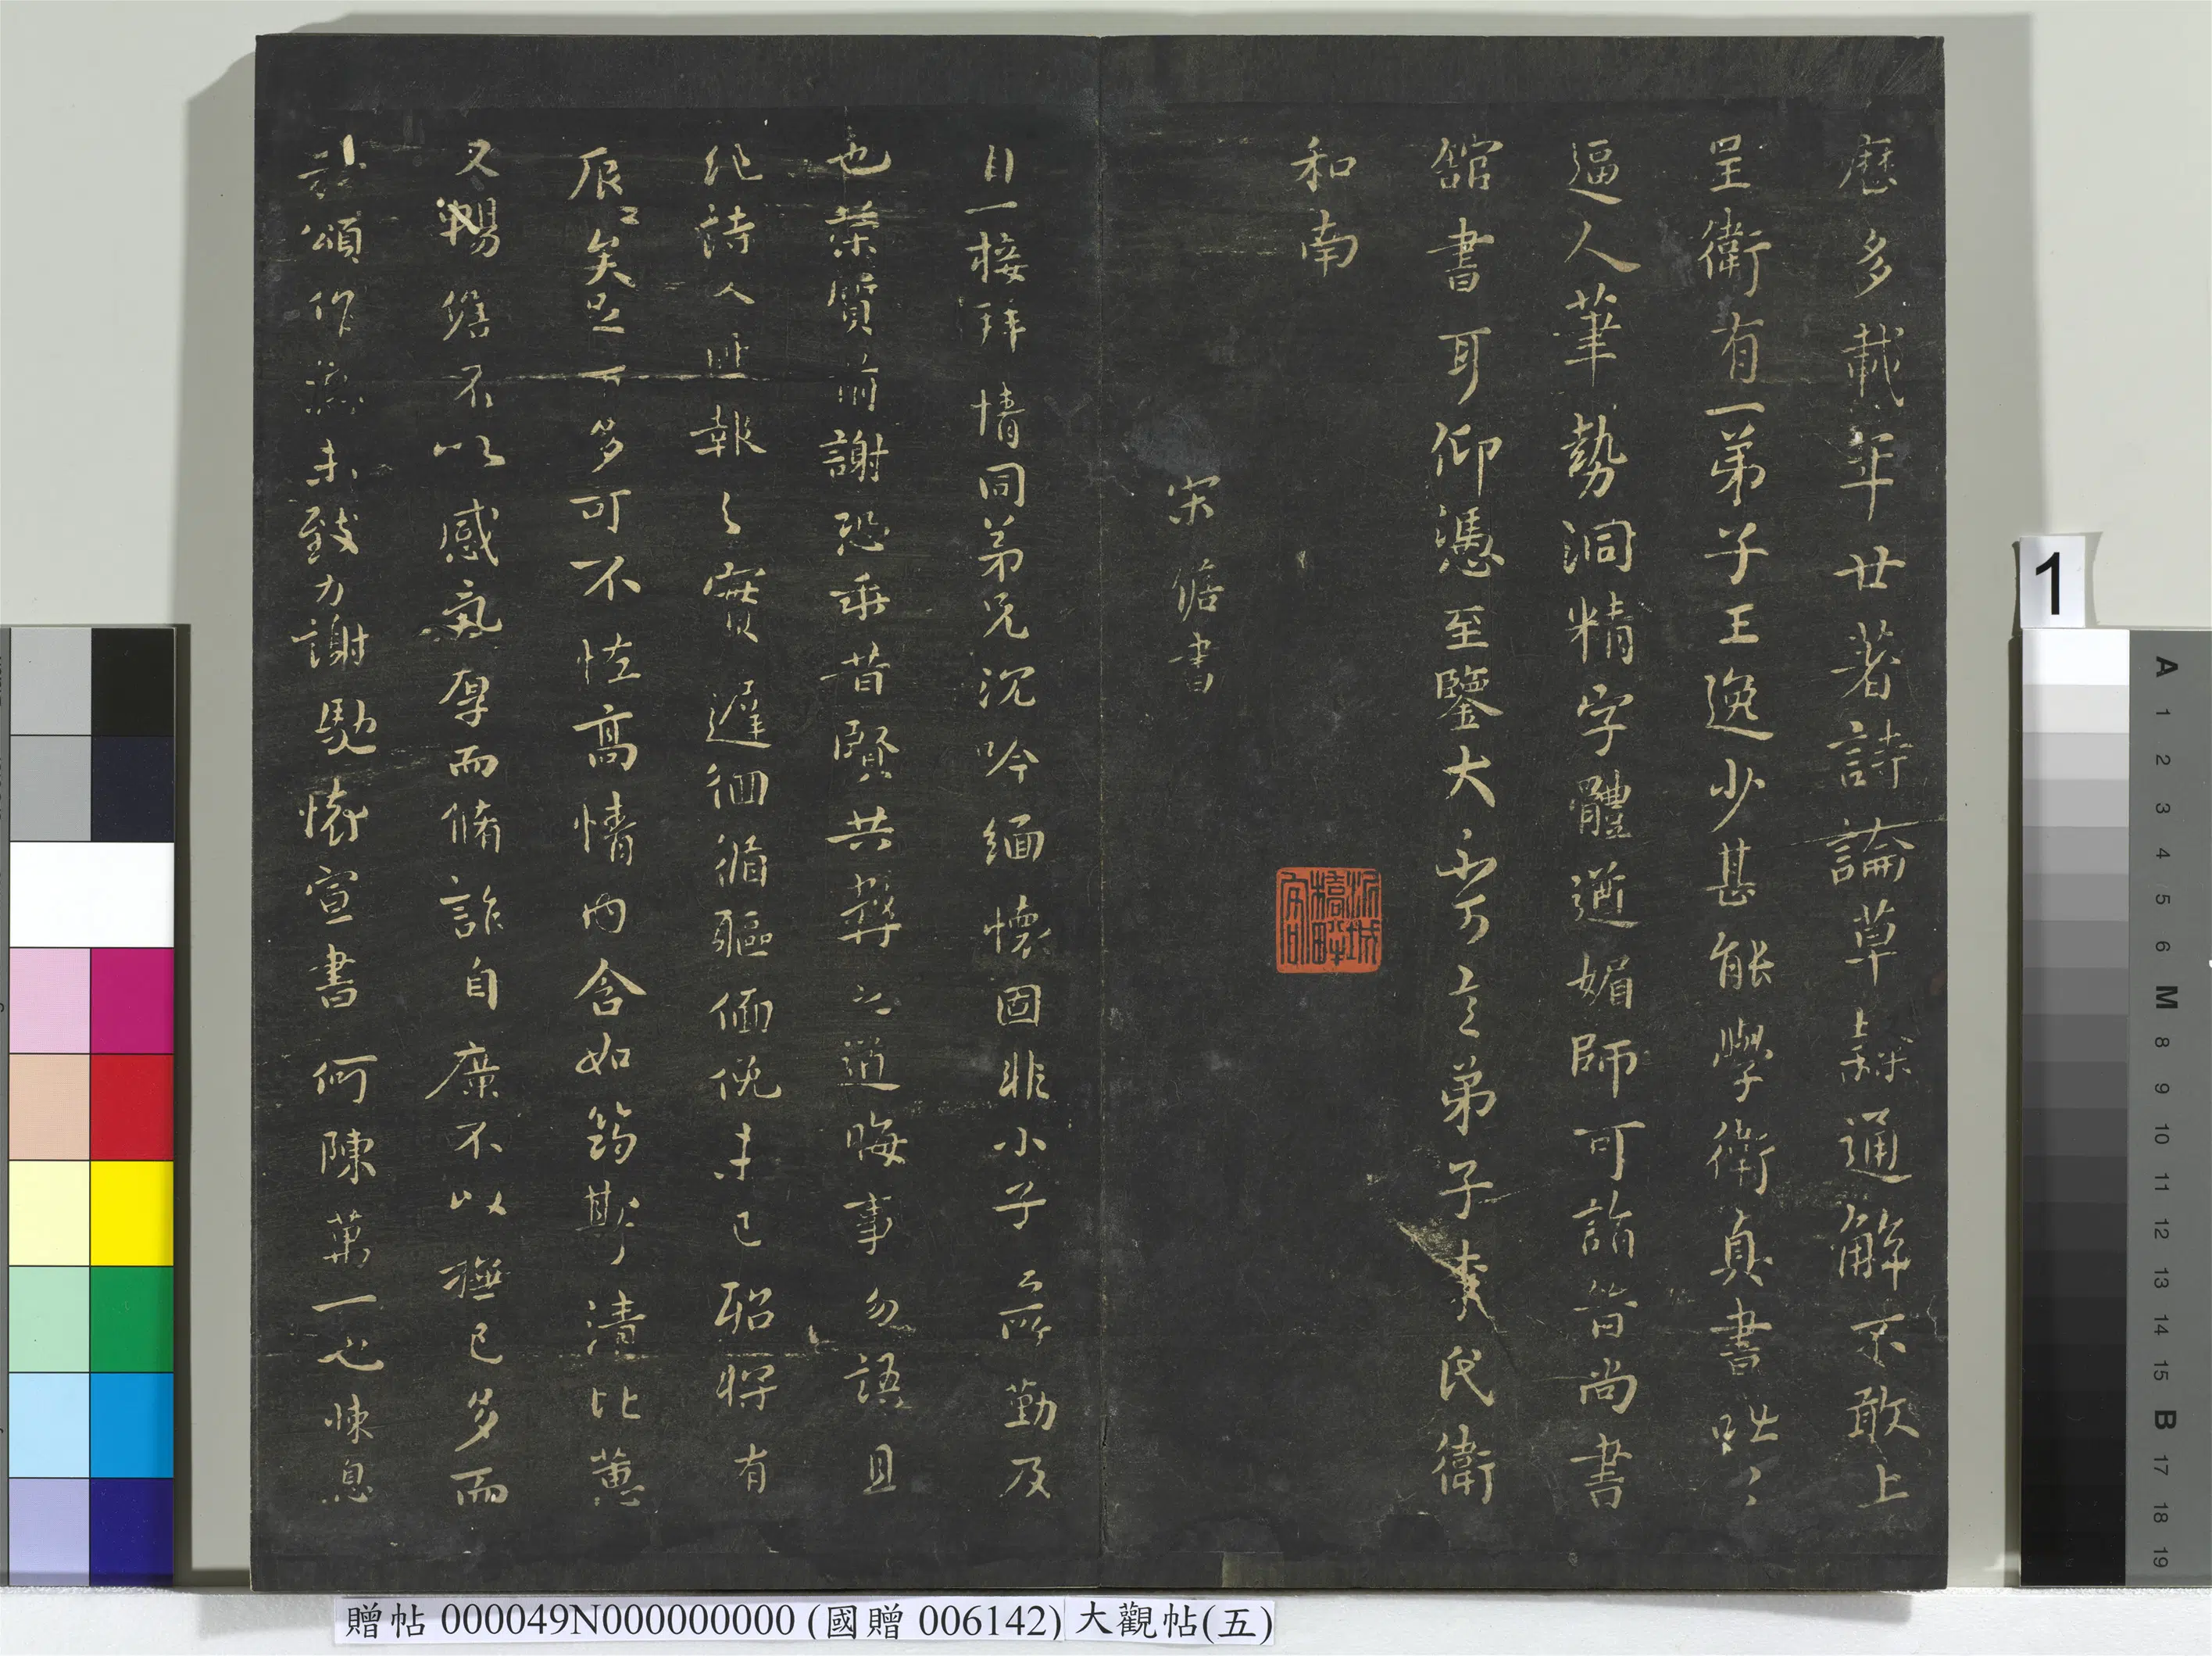 歷多載年廿著詩論草隸通解不敢上
呈衛有一弟子王逸少甚能學衛真書咄〻
逼人筆勢洞精字體遒媚師可詣晉尚書
館書耳仰憑至鑒大不可言弟子李氏衛
和南
宋儋書
接拜情同弟兄沉吟緬懷固非小子所勤及
也蒙質前謝恐乖昔賢共弊之道晦事勿語且
紀詩人匪報之實遲徊循軀僶俛未已聊將有
辰矣足下多可不怪高情內含如筠斯清比蕙
又暢儋不以感氣厚而脩詐自廣不以撫己多而
頌作無未致力謝勤懷宣書何陳萬一也悚息
1
A 1 2 3 4 5 6 M 8 9 10 11 12 13 14 15 B 17 18 19
贈帖 000049N000000000 (國贈 006142) 大觀帖(五)